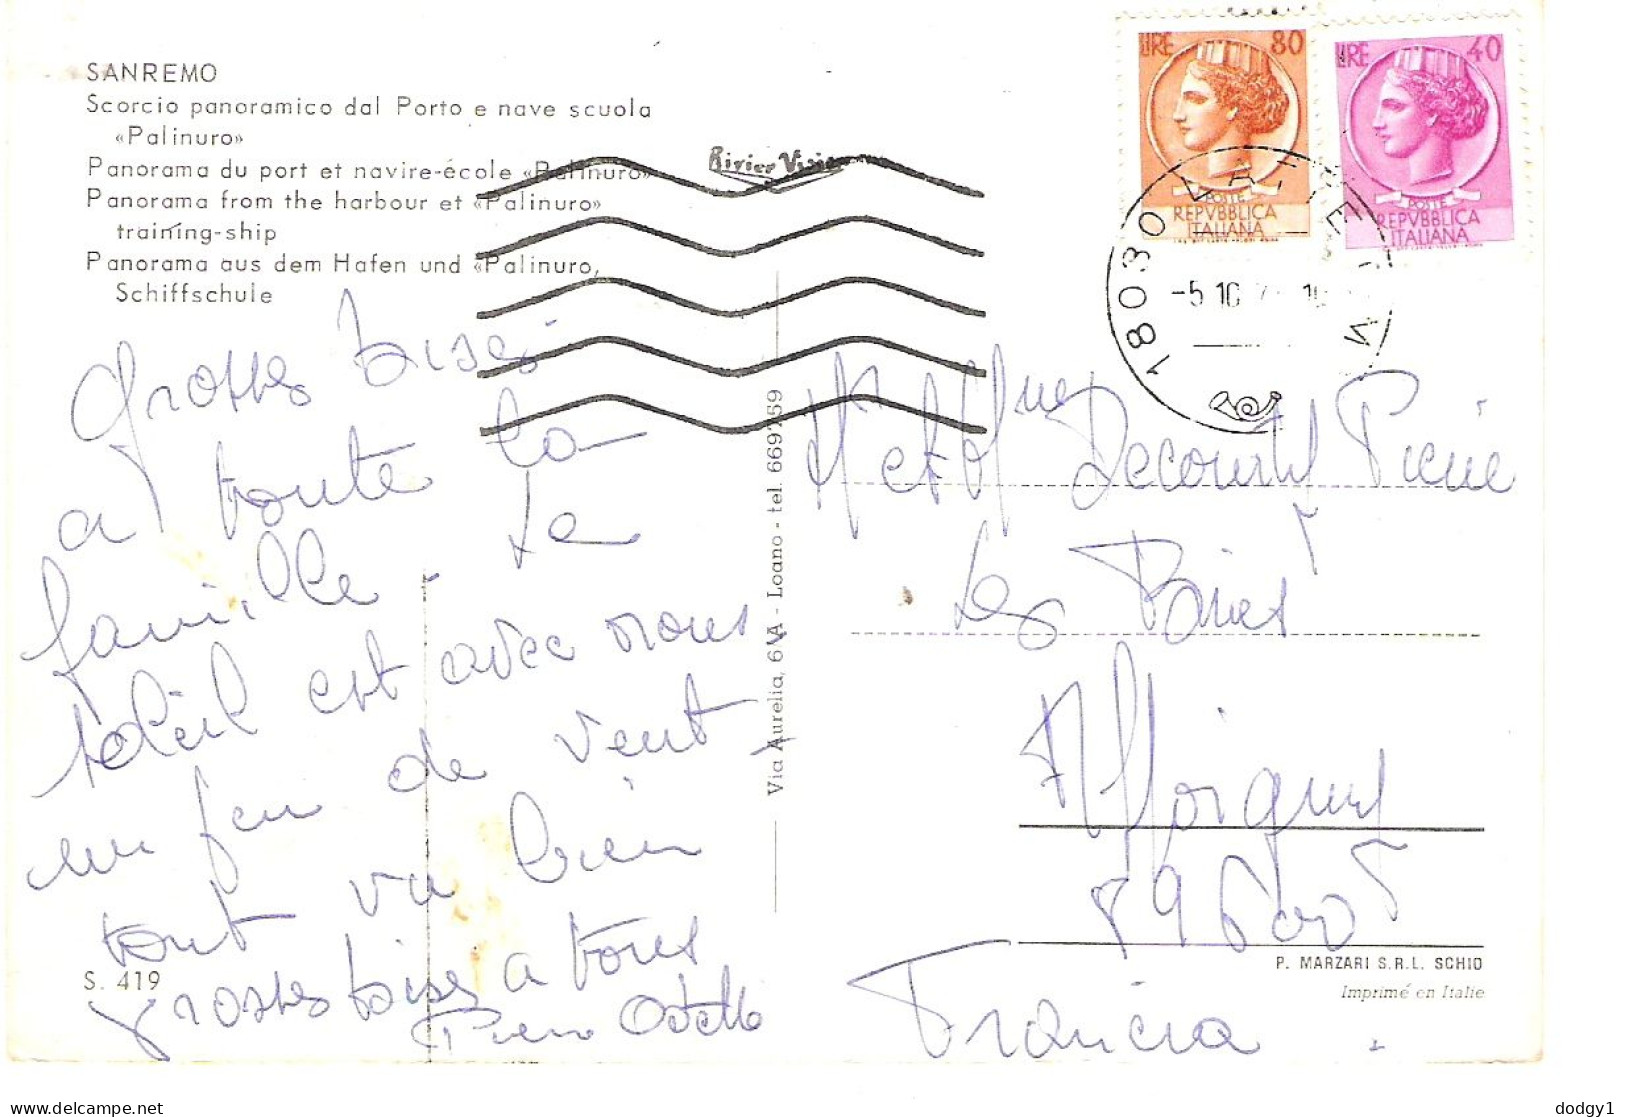 SANREMO
Scorcio panoramico dal Porto e nave scuola
«Palinuro»
Panorama du port et navire-école «Palinuro»
Panorama from the harbour et «Palinuro»
training-ship
Panorama aus dem Hafen und «Palinuro,
Schiffschule
LIRE 80
POSTE
REPVBBLICA
ITALIANA
LIRE 40
POSTE
REPVBBLICA
ITALIANA
18030
-5 10
Grosses bises
a toute la
famille. Le
soleil est avec nous
un peu de vent
tout va bien
grosses bises a tous
Odette
Via Aurelia, 6/A - Loano - tel. 669259
Pierre
Les
59
Francia.
S. 419
P. MARZARI S.R.L. SCHIO
Imprimé en Italie
dodgy1